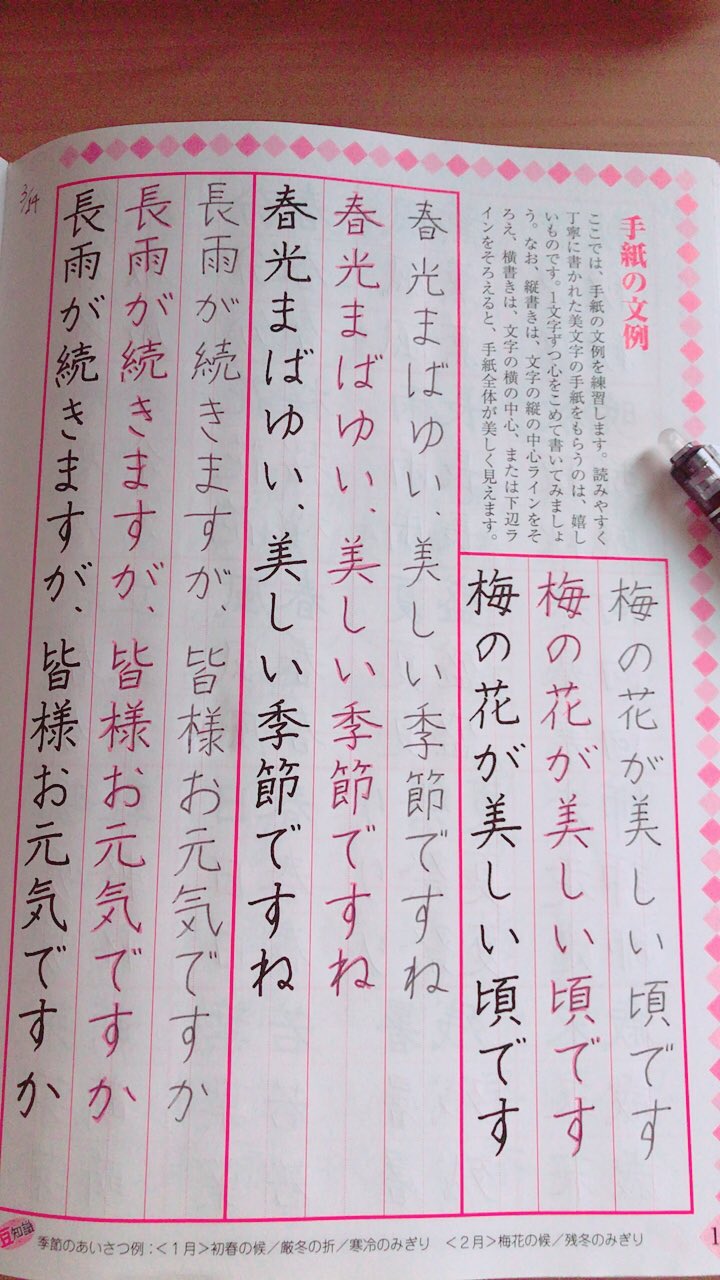 手紙の文例
ここでは、手紙の文例を練習します。読みやすく
丁寧に書かれた美文字の手紙をもらうのは、嬉し
いものです。1文字ずつ心をこめて書いてみましょ
う。なお、縦書きは、文字の縦の中心ラインをそ
ろえ、横書きは、文字の横の中心、または下辺ラ
インをそろえると、手紙全体が美しく見えます。
梅の花が美しい頃です
梅の花が美しい頃です
梅の花が美しい頃です
春光まばゆい、美しい季節ですね
春光まばゆい、美しい季節ですね
春光まばゆい、美しい季節ですね
長雨が続きますが、皆様お元気ですか
長雨が続きますが、皆様お元気ですか
長雨が続きますが、皆様お元気ですか
3/14
豆知識
季節のあいさつ例:<1月>初春の候/厳冬の折/寒冷のみぎり <2月>梅花の候/残冬のみぎり